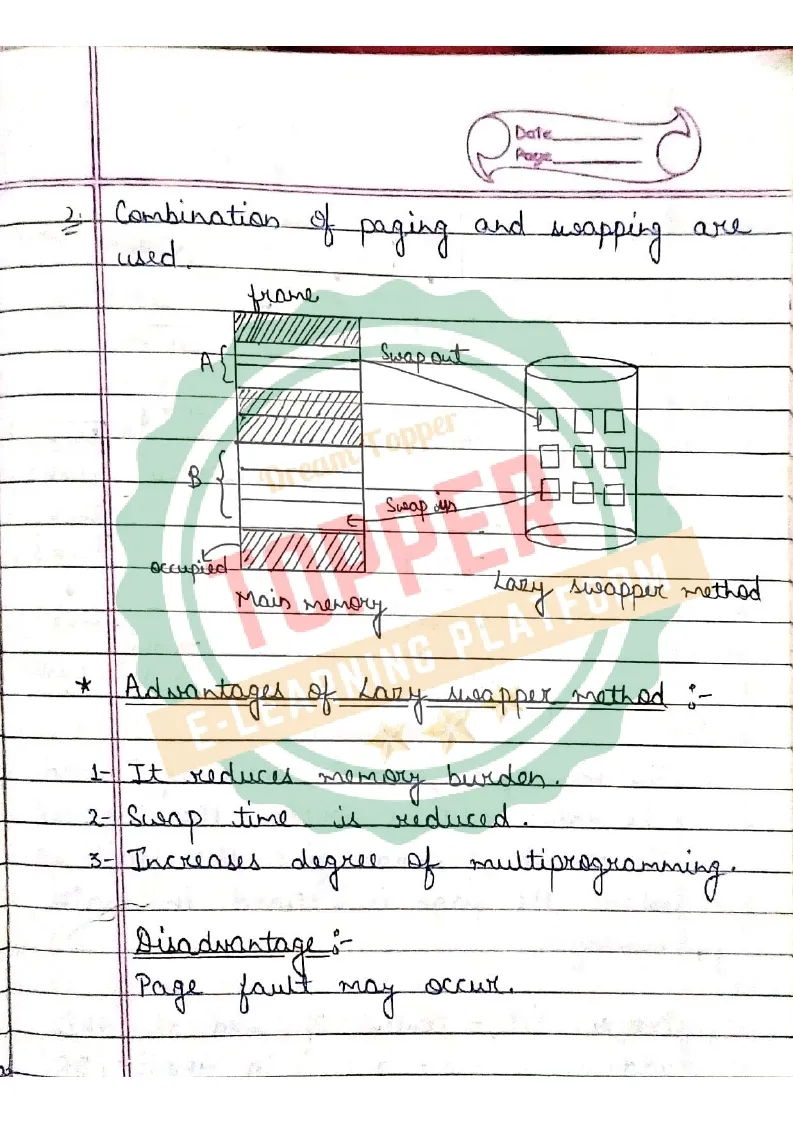 Date
Page
2. Combination of paging and swapping are
used.
frame
A
Swap out
Dream Topper
B
Swap in
TOPPER
occupied
Main memory
Lazy swapper method
E-LEARNING PLATFORM
* Advantages of Lazy swapper method :-
1- It reduces memory burden.
2- Swap time is reduced.
3- Increases degree of multiprogramming.
Disadvantage :-
Page fault may occur.